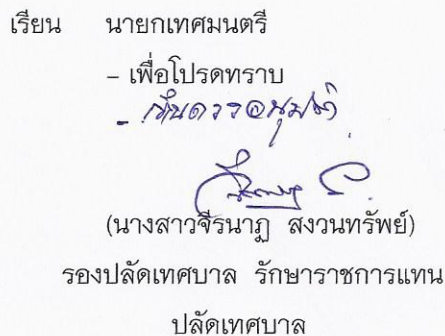 เรียน นายกเทศมนตรี
– เพื่อโปรดทราบ
- เห็นควรอนุมัติ
(นางสาวจีรนาฏ สงวนทรัพย์)
รองปลัดเทศบาล รักษาราชการแทน
ปลัดเทศบาล